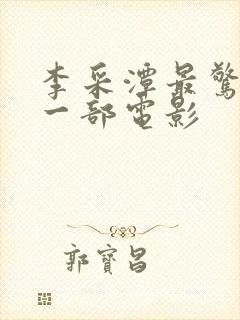 李采潭最驚
一部電影
郭寶昌